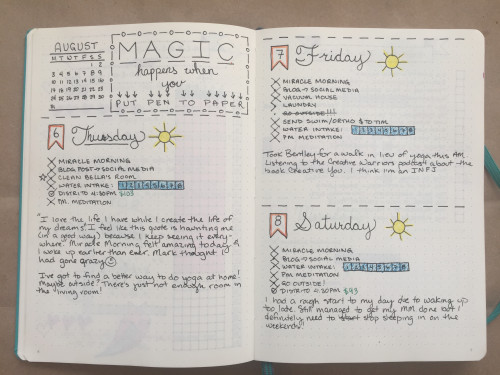 AUGUST
M T W T F S S
1 2
3 4 5 6 7 8 9
10 11 12 13 14 15 16
17 18 19 20 21 22 23
24 25 26 27 28 29 30
31
MAGIC
happens when
you
PUT PEN TO PAPER
6 Thursday
MIRACLE MORNING
BLOG POST → SOCIAL MEDIA
CLEAN BELLA'S ROOM
WATER INTAKE: 1 2 3 4 5 6 7 8
DISTRICT 4:30PM $103
PM. MEDITATION
"I love the life I have while I create the life of
my dreams." I feel like this quote is haunting me
(in a good way) because I keep seeing it every-
where. Miracle Morning felt amazing today. A
I woke up earlier than ever. Mark thought I
had gone crazy
I've got to find a better way to do yoga at home!
Maybe outside? There's just not enough room in
the living room!
7 Friday
MIRACLE MORNING
BLOG → SOCIAL MEDIA
VACUUM HOUSE
LAUNDRY
GO OUTSIDE!!!
SEND SWIM/ORTHO $ TO TIM
WATER INTAKE: 1 2 3 4 5 6 7 8
PM MEDITATION
Took Bentley for a walk in lieu of yoga this AM.
Listening to the Creative Warriors podcast about the
book Creative You. I think I'm an INFJ
8 Saturday
MIRACLE MORNING
BLOG → SOCIAL MEDIA
WATER INTAKE: 1 2 3 4 5 6 7 8
PM MEDITATION
GO OUTSIDE!
DISTRICT 4:30PM $93
I had a rough start to my day due to waking up
too late. Still managed to get my MM done but I
definitely need to start stop sleeping in on the
weekends!!